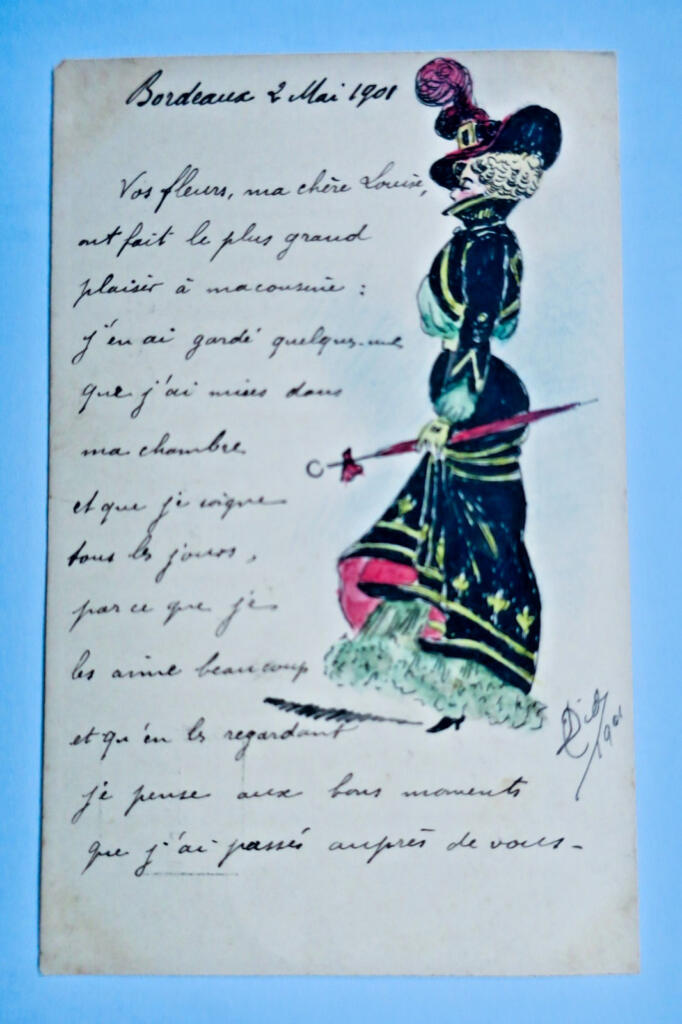 Bordeaux 2 Mai 1901
Vos fleurs, ma chère Louise,
ont fait le plus grand
plaisir à ma cousine :
j'en ai gardé quelques-unes
que j'ai mises dans
ma chambre
et que je soigne
tous les jours,
parce que je
les aime beaucoup
et qu'en les regardant
je pense aux bons moments
que j'ai passés auprès de vous -
1901